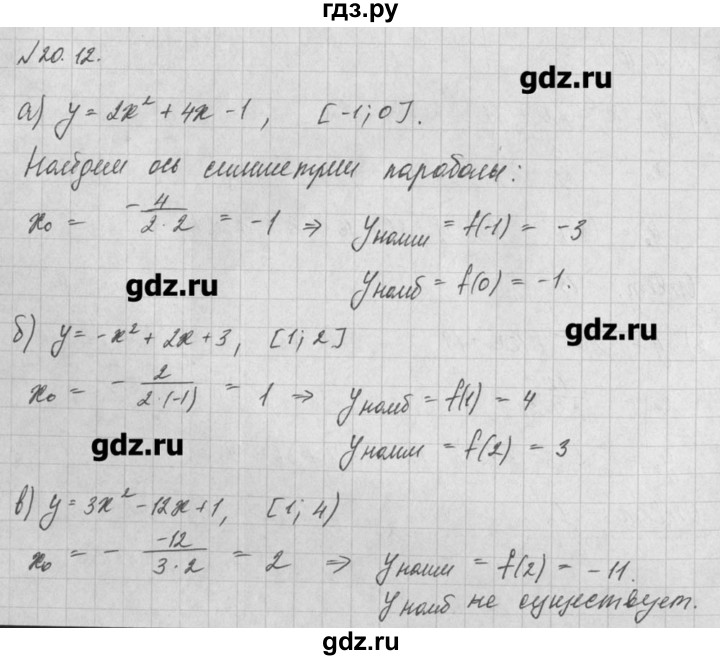 гдз.ру
№20.12.
gdz.ru
а) y = 2x² + 4x - 1, [-1; 0].
Найдем ось симметрии параболы:
x₀ = -4/(2·2) = -1 ⇒ yнаим = f(-1) = -3
yнаиб = f(0) = -1.
gdz.ru
gdz.ru
б) y = -x² + 2x + 3, [1; 2]
x₀ = - 2/(2·(-1)) = 1 ⇒ yнаиб = f(1) = 4
yнаим = f(2) = 3
gdz.ru
в) y = 3x² - 12x + 1, [1; 4)
x₀ = - -12/(3·2) = 2 ⇒ yнаим = f(2) = -11.
yнаиб не существует.
gdz.ru